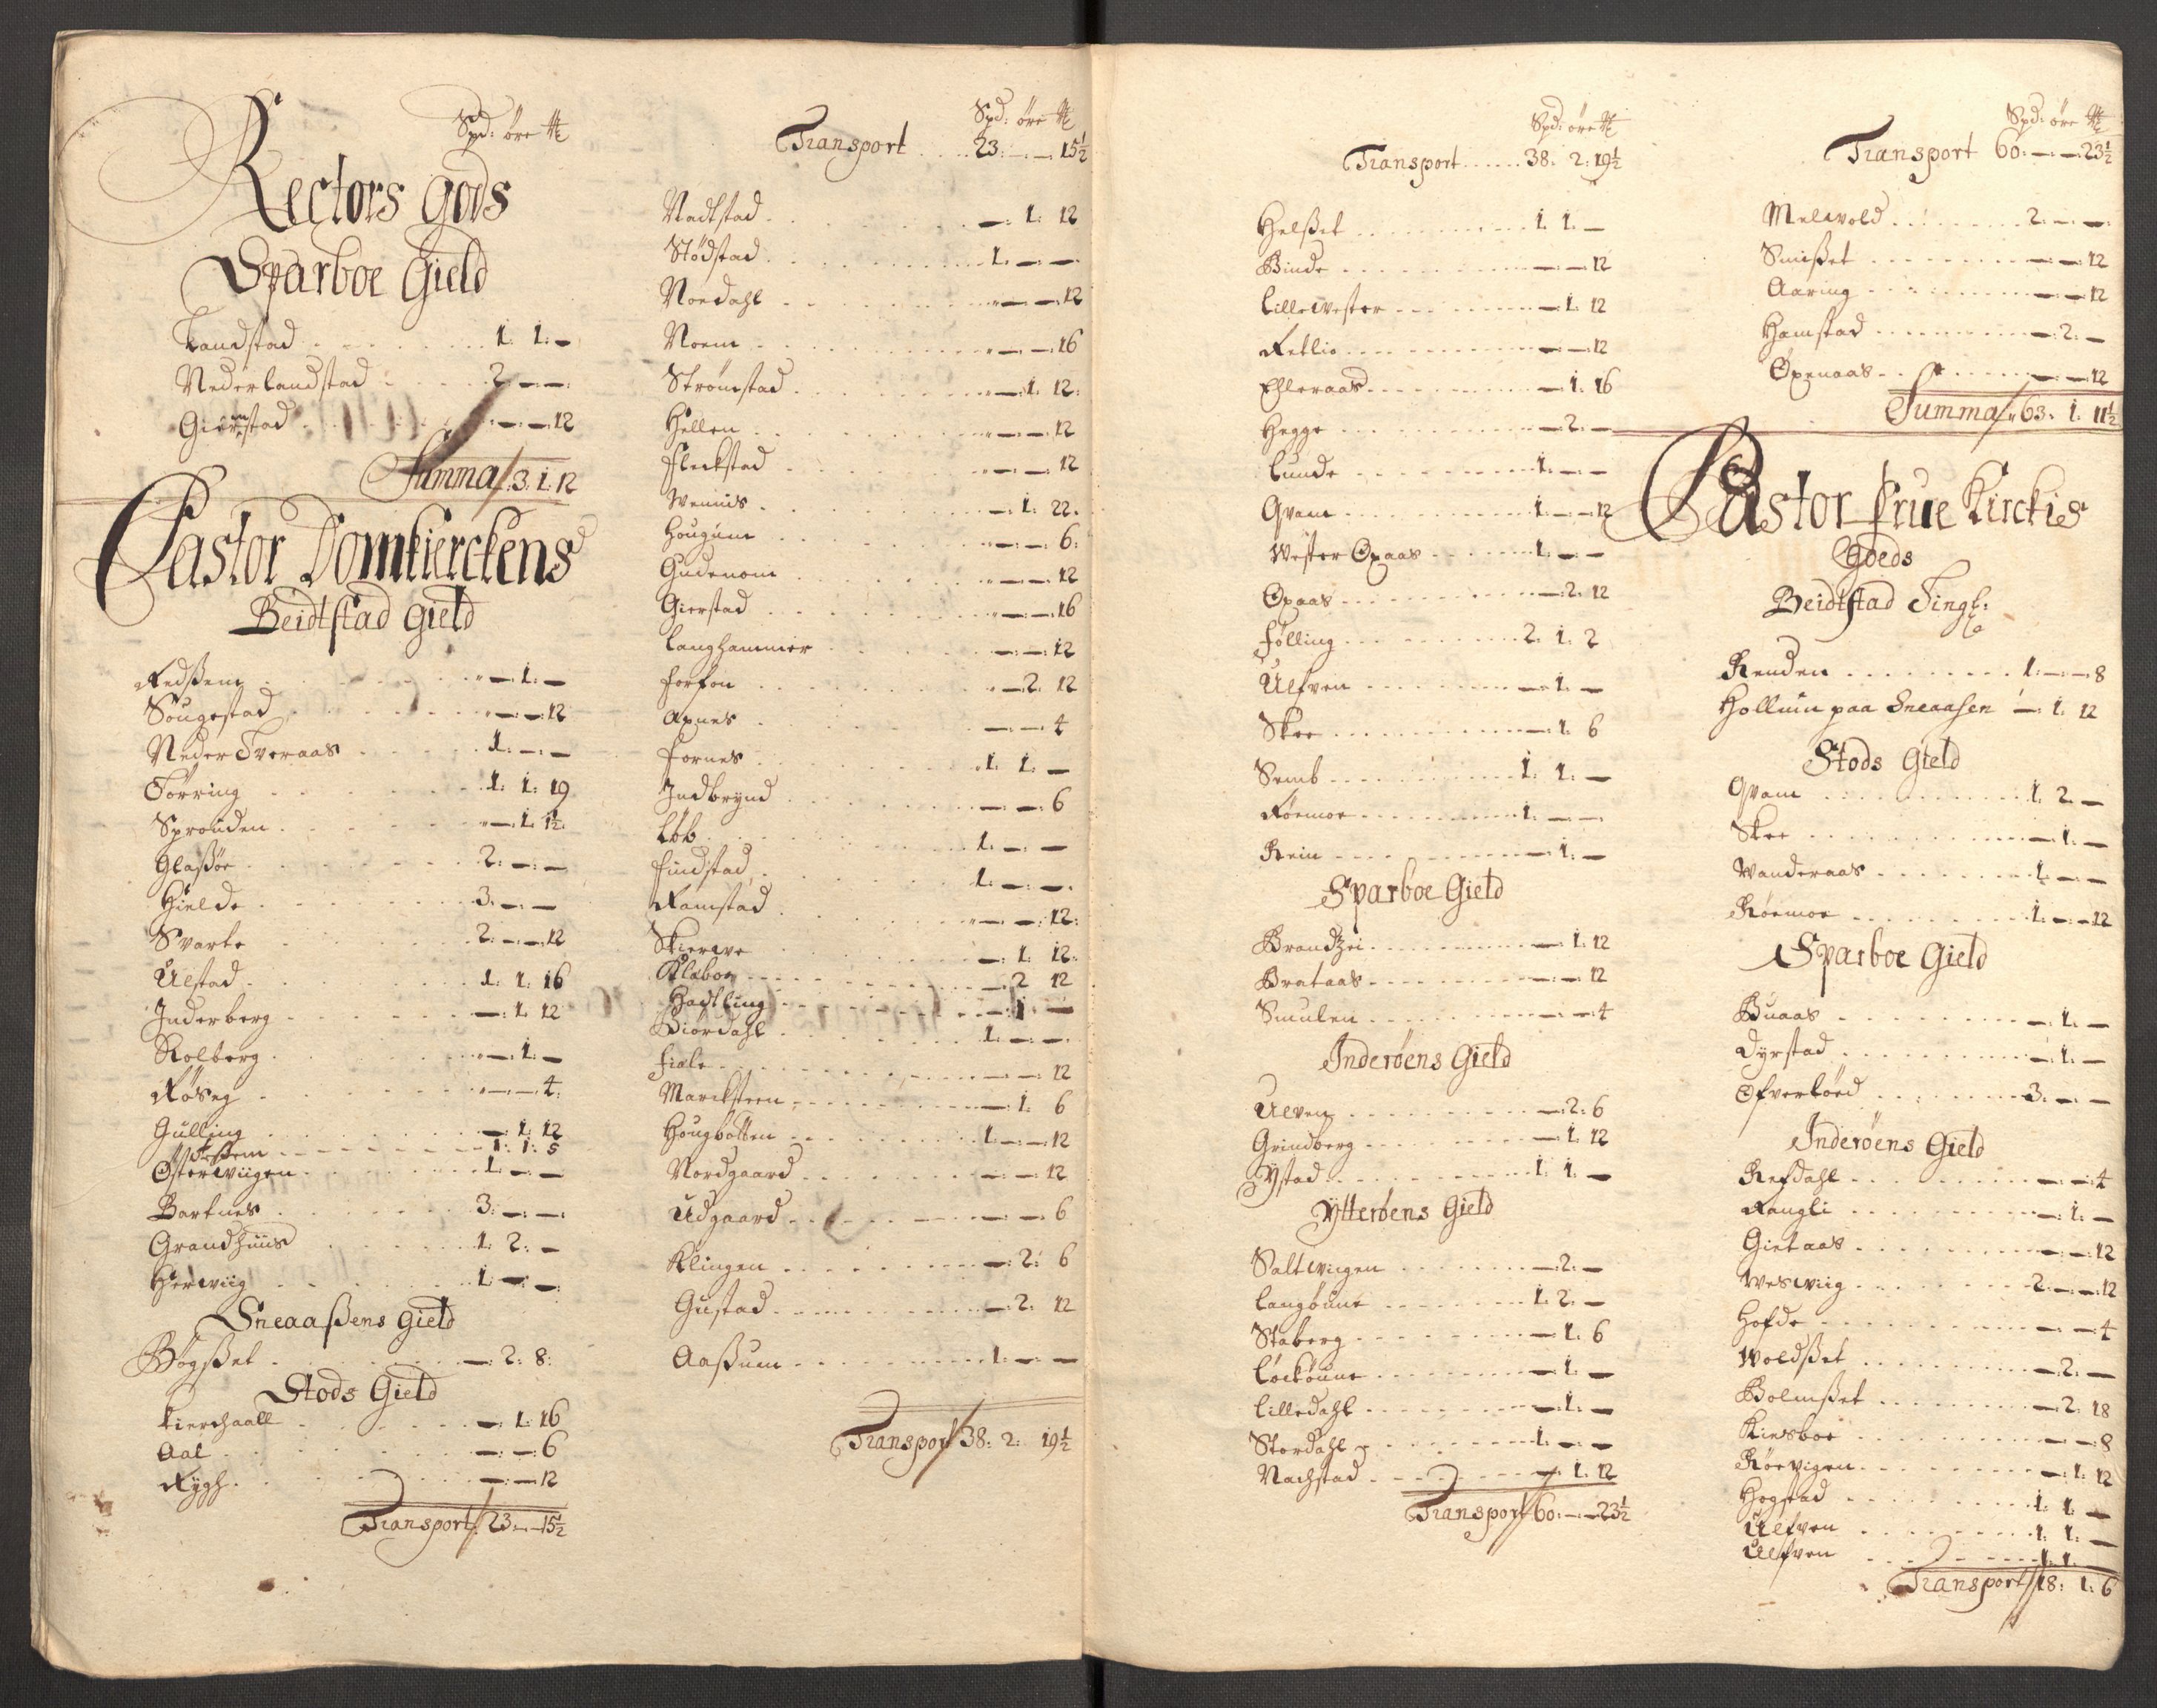 Spd: öre ℔
Rectors gods
Sparboe Gield
Landstad 1: 1: –
Nederlandstad 2: – –
Gierrestad – – 12
Summa 3: 1: 12
Pastor Domkierckens
Beidtstad Gield
Redßem – 1: –
Sougestad – – 12
Neder Tveraas 1: – –
Törring 1: 1: 19
Sprouden – 1: 1½
Glaßöe 2: – –
Hielde 3: – –
Svarte 2: – 12
Ulstad 1: 1: 16
Inderberg – 1: 12
Kolberg – 1: –
Röseg – – 4:
Gulling – 1: 12
1: 1: 5
Østerwiigen 1: – –
Bartnes 3: – –
Grandhuus 1: 2: –
Herwiig 1: – –
Sneaaßens Gield
Bögßet – 2: 8:
Stods Gield
Kierchaall – 1: 16
Aal – – 6
Rygh – – 12
Transport 23: – 15½
Spd: öre ℔
Transport 23: – 15½
Nadstad – 1: 12
Stödstad 1: – –
Noedahl – – 12
Noem – – 16
Strömstad – 1: 12:
Hellen – – 12
Fleckstad – – 12
Wennis – 1: 22.
Hougum – – 6:
Gudenom – – 12
Gierstad – – 16
Langhammer – – 12
Forfon – 2: 12
Apnes – – 4
Fornes 1: 1: –
Indbrynd – – 6
Löb 1: – –
Findstad 1: – –
Ramstad – – 12:
Skierwe – 1: 12:
Klaboe – 2 12
Hadling – 1 –
Biördahl 1: – –
Fiale – – 12
Marcksteen – 1: 6
Hougbotten 1: – 12
Nordgaard – – 12
Udgaard – – 6
Klingen – 2: 6
Gustad – 2: 12
Aaßum 1: – –
Transport 38: 2: 19½
Spd: öre ℔
Transport 38: 2: 19½
Helßet 1: 1: –
Binde – – 12
Lillewester – 1: 12
Retlie – – 12
Ehleraas – 1: 16
Hegge – 2: –
Lunde 1: – –
Qvam 1: – 12
Wester Opaas 1: – –
Opaas – 2: 12
Fölling 2: 1: 2
Ulfven – 1: –
Skee – 1: 6
Semb 1: 1: –
Röemoe 1: – –
Rein – 1: –
Sparboe Gield
Brandzei – 1: 12
Brataas – – 12
Smulen – – 4
Inderöens Gield
Ulven – 2: 6
Grindberg – 1: 12
Ystad 1: 1: –
Ytteröens Gield
Saltwiigen – 2: –
Langöune 1: 2: –
Staberg – 1: 6
Löeköune – 1: –
Lilledahl – 1: –
Stordahl 1: – –
Nachstad – 1: 12
Transport 60: – 23½
Spd: öre ℔
Transport 60: – 23½
Melwold 2: – –
Smißet – – 12
Aaring – – 12
Hamstad – 2: –
Öpenaas – – 12
Summa 63: 1: 11½
Pastor Frue Kirckis
Goeds
Beidtstad Tingl:
Renden 1: – 8
Hollum paa Sneaasen – 1: 12
Stods Gield
Qvam 1: 2: –
Skee – 1: –
Wanderaas 1: – –
Röemoe 1: – 12
Sparboe Gield
Buaas – 1: –
Dyrstad – 1: –
Öfverköed 3: – –
Inderöens Gield
Refdahl – – 4
Rangli – 1: –
Gietaas – – 12
Weswiig 2: – 12
Hofde – – 4
Woldßet – 2: –
Bolmßet – 2: 18
Kiesboe – – 8
Röevigen – 1: 12
Hogstad 1: 1: –
Ulfven 1: 1: –
Ulfven 1: 1:
Transport 18: 1: 6